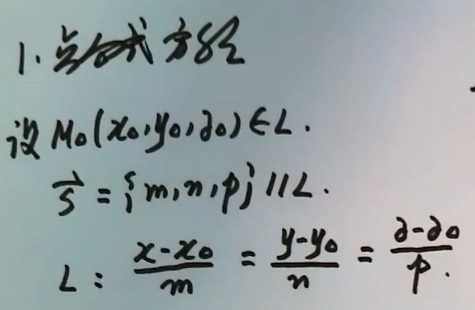 1. 点向式方程
设 M₀(x₀,y₀,z₀)∈L.
s⃗ = {m,n,p} // L.
L: (x-x₀)/m = (y-y₀)/n = (z-z₀)/p.